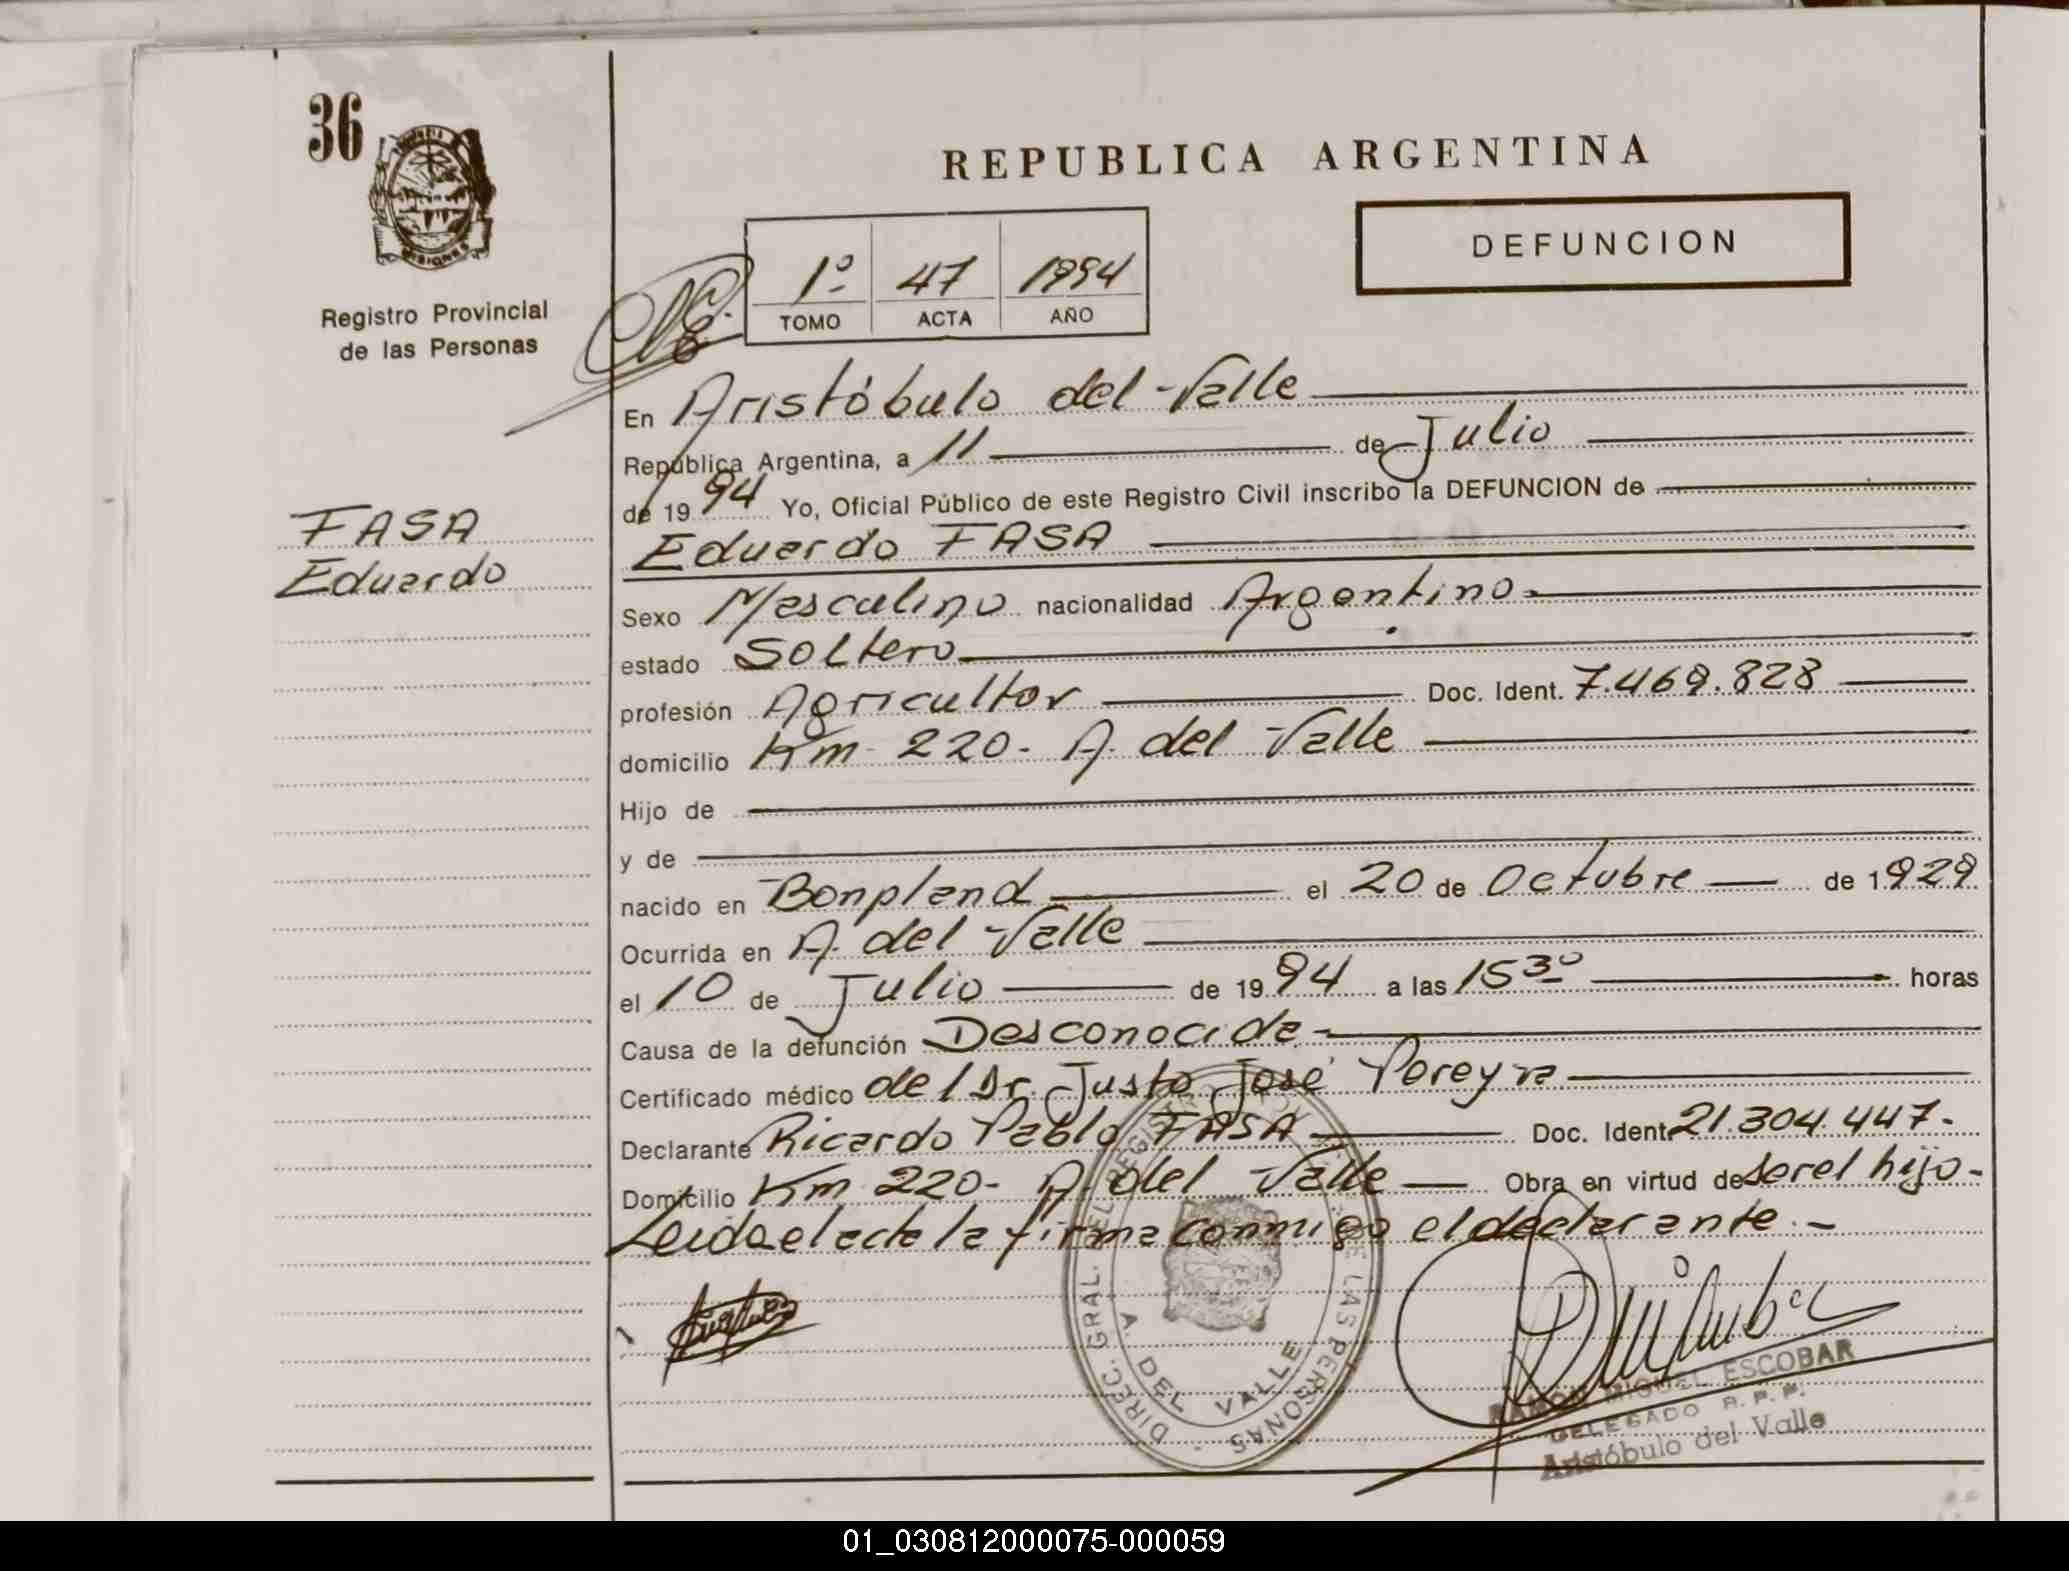 36
Registro Provincial
de las Personas
REPUBLICA ARGENTINA
DEFUNCION
1º 47 1994
TOMO ACTA AÑO
En Aristóbulo del Valle
República Argentina, a 11 de Julio
de 1994 Yo, Oficial Público de este Registro Civil inscribo la DEFUNCION de
FASA
Eduardo
Eduardo FASA
Sexo Masculino nacionalidad Argentino
estado Soltero
profesión Agricultor Doc. Ident. 7.469.828
domicilio Km 220- A. del Valle
Hijo de
y de
nacido en Bonpland el 20 de Octubre de 1929
Ocurrida en A. del Valle
el 10 de Julio de 1994 a las 15 30 horas
Causa de la defunción Desconocida
Certificado médico del Dr. Justo José Pereyra
Declarante Ricardo Pablo FASA Doc. Ident. 21.304.447.-
Domicilio Km 220- A. del Valle Obra en virtud de ser el hijo-
Leida el acta la firma conmigo el declarante.-
DIREC. GRAL. DEL REGISTRO DE LAS PERSONAS
A. DEL VALLE
RAMON MIGUEL ESCOBAR
DELEGADO R. P. P.
Aristóbulo del Valle
01_030812000075-000059